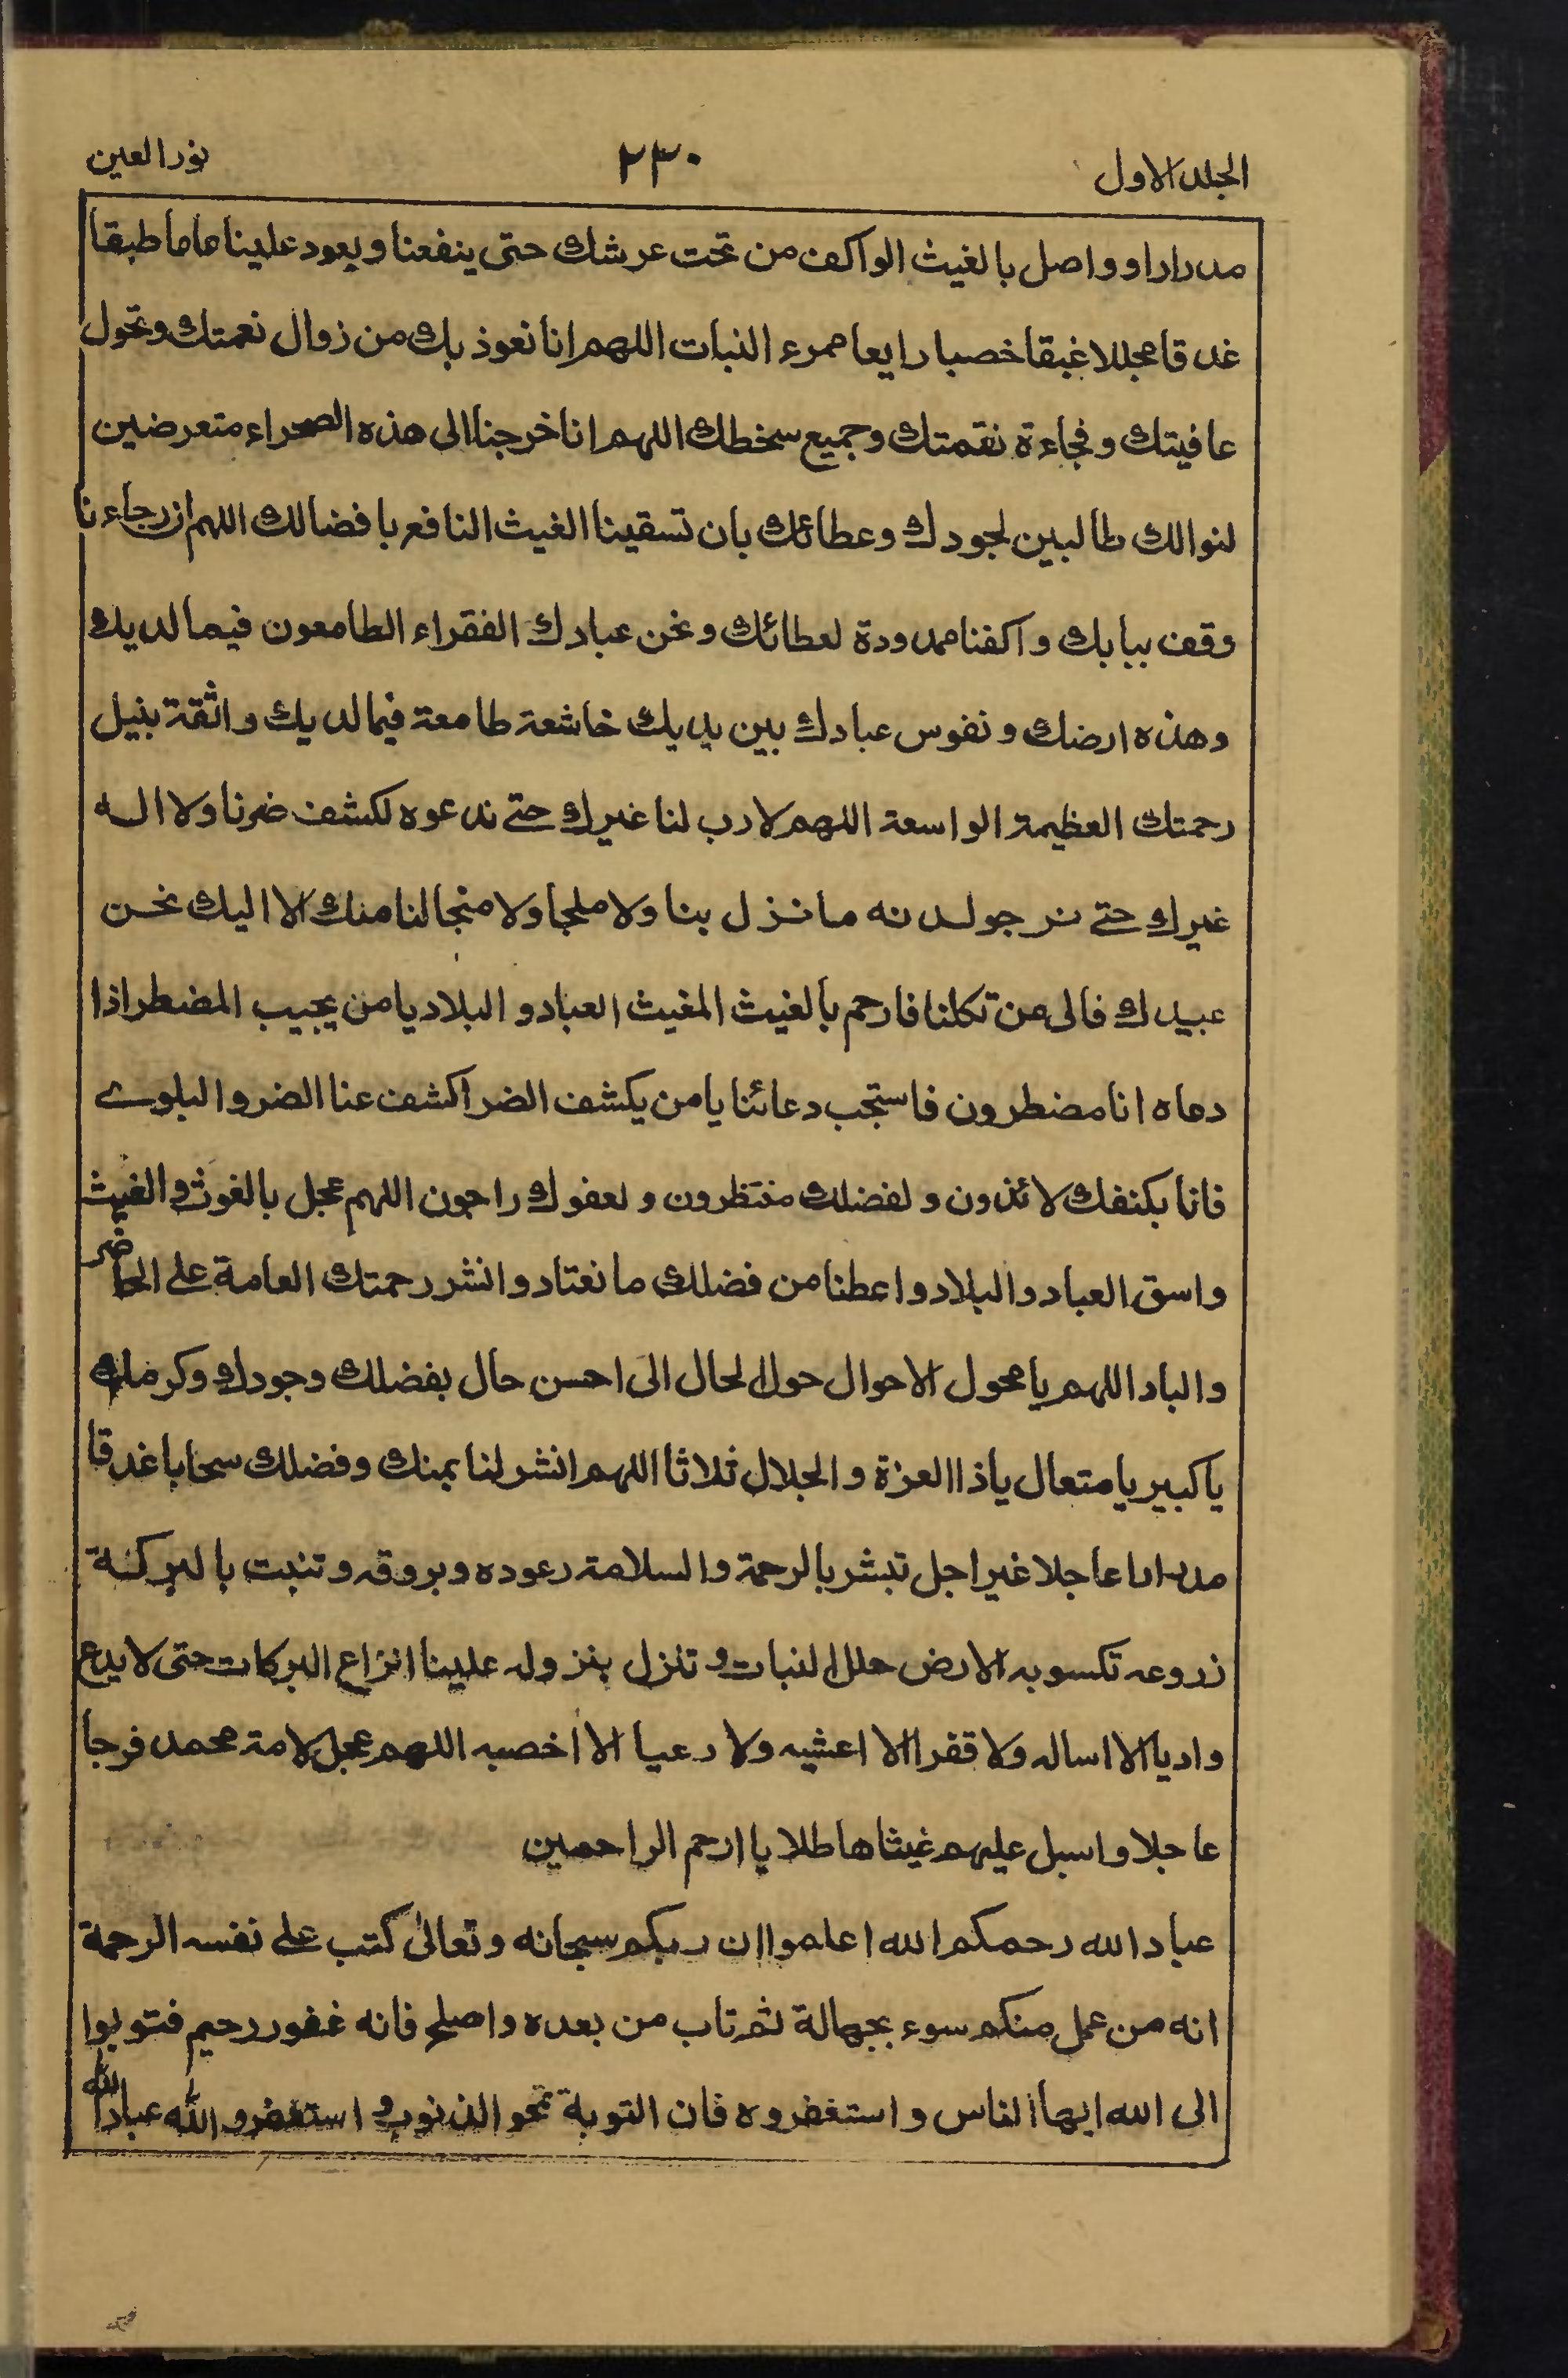 الجلد الاول ٢٣٠ نور العين
مدرارا و واصل بالغيث الواكف من تحت عرشك حتى ينفعنا ويعود علينا عاما طبقا
غدقا مجللا غبقا خصبا رايعا ممرء النبات اللهم انا نعوذ بك من زوال نعمتك وتحول
عافيتك و فجاءة نقمتك وجميع سخطك اللهم انا خرجنا الى هذه الصحراء متعرضين
لنوالك طالبين لجودك وعطائك بان تسقينا الغيث النافع بافضالك اللهم ان رجاءنا
وقف ببابك واكفنا ممدودة لعطائك ونحن عبادك الفقراء الطامعون فيما لديك
وهذه ارضك و نفوس عبادك بين يديك خاشعة طامعة فيما لديك واثقة بنيل
رحمتك العظيمة الواسعة اللهم لا رب لنا غيرك حتے ندعوه لكشف ضرنا ولا اله
غيرك حتے نرجو لدنه ما نزل بنا ولا ملجأ ولا منجا لنا منك الا اليك نحن
عبيدك فالى من تكلنا فارحم بالغيث المغيث العباد و البلاد يا من يجيب المضطر اذا
دعاه انا مضطرون فاستجب دعائنا يا من يكشف الضر اكشف عنا الضر و البلوے
فانا بكنفك لائذون و لفضلك منتظرون و لعفوك راجون اللهم عجل بالغوث و الغيث
واسق العباد والبلاد واعطنا من فضلك ما نعتاد وانشر رحمتك العامة علے الحاضر
والباد اللهم يا محول الاحوال حول لحال الى احسن حال بفضلك وجودك وكرمك
يا كبير يا متعال يا ذا العزة و الجلال ثلاثا اللهم انشر لنا بمنك وفضلك سحابا غدقا
مدرارا عاجلا غير اجل تبشر بالرحمة والسلامة رعوده وبروقه وتنبت بالبركة
زروعه تكسو به الارض حلل النبات و تنزل بنزوله علينا انواع البركات حتى لا يدع
واديا الا اساله ولا قفرا الا اعشبه ولا رعيا الا أخصبه اللهم عجل لامة محمد فرجا
عاجلا واسبل عليهم غيثا هاطلا يا ارحم الراحمين
عباد الله رحمكم الله اعلموا ان ربكم سبحانه وتعالىٰ كتب علے نفسه الرحمة
انه من عمل منكم سوء بجهالة ثم تاب من بعده واصلح فانه غفور رحيم فتوبوا
الى الله ايها الناس و استغفروه فان التوبة تمحو الذنوب و استغفروا الله عباد الله